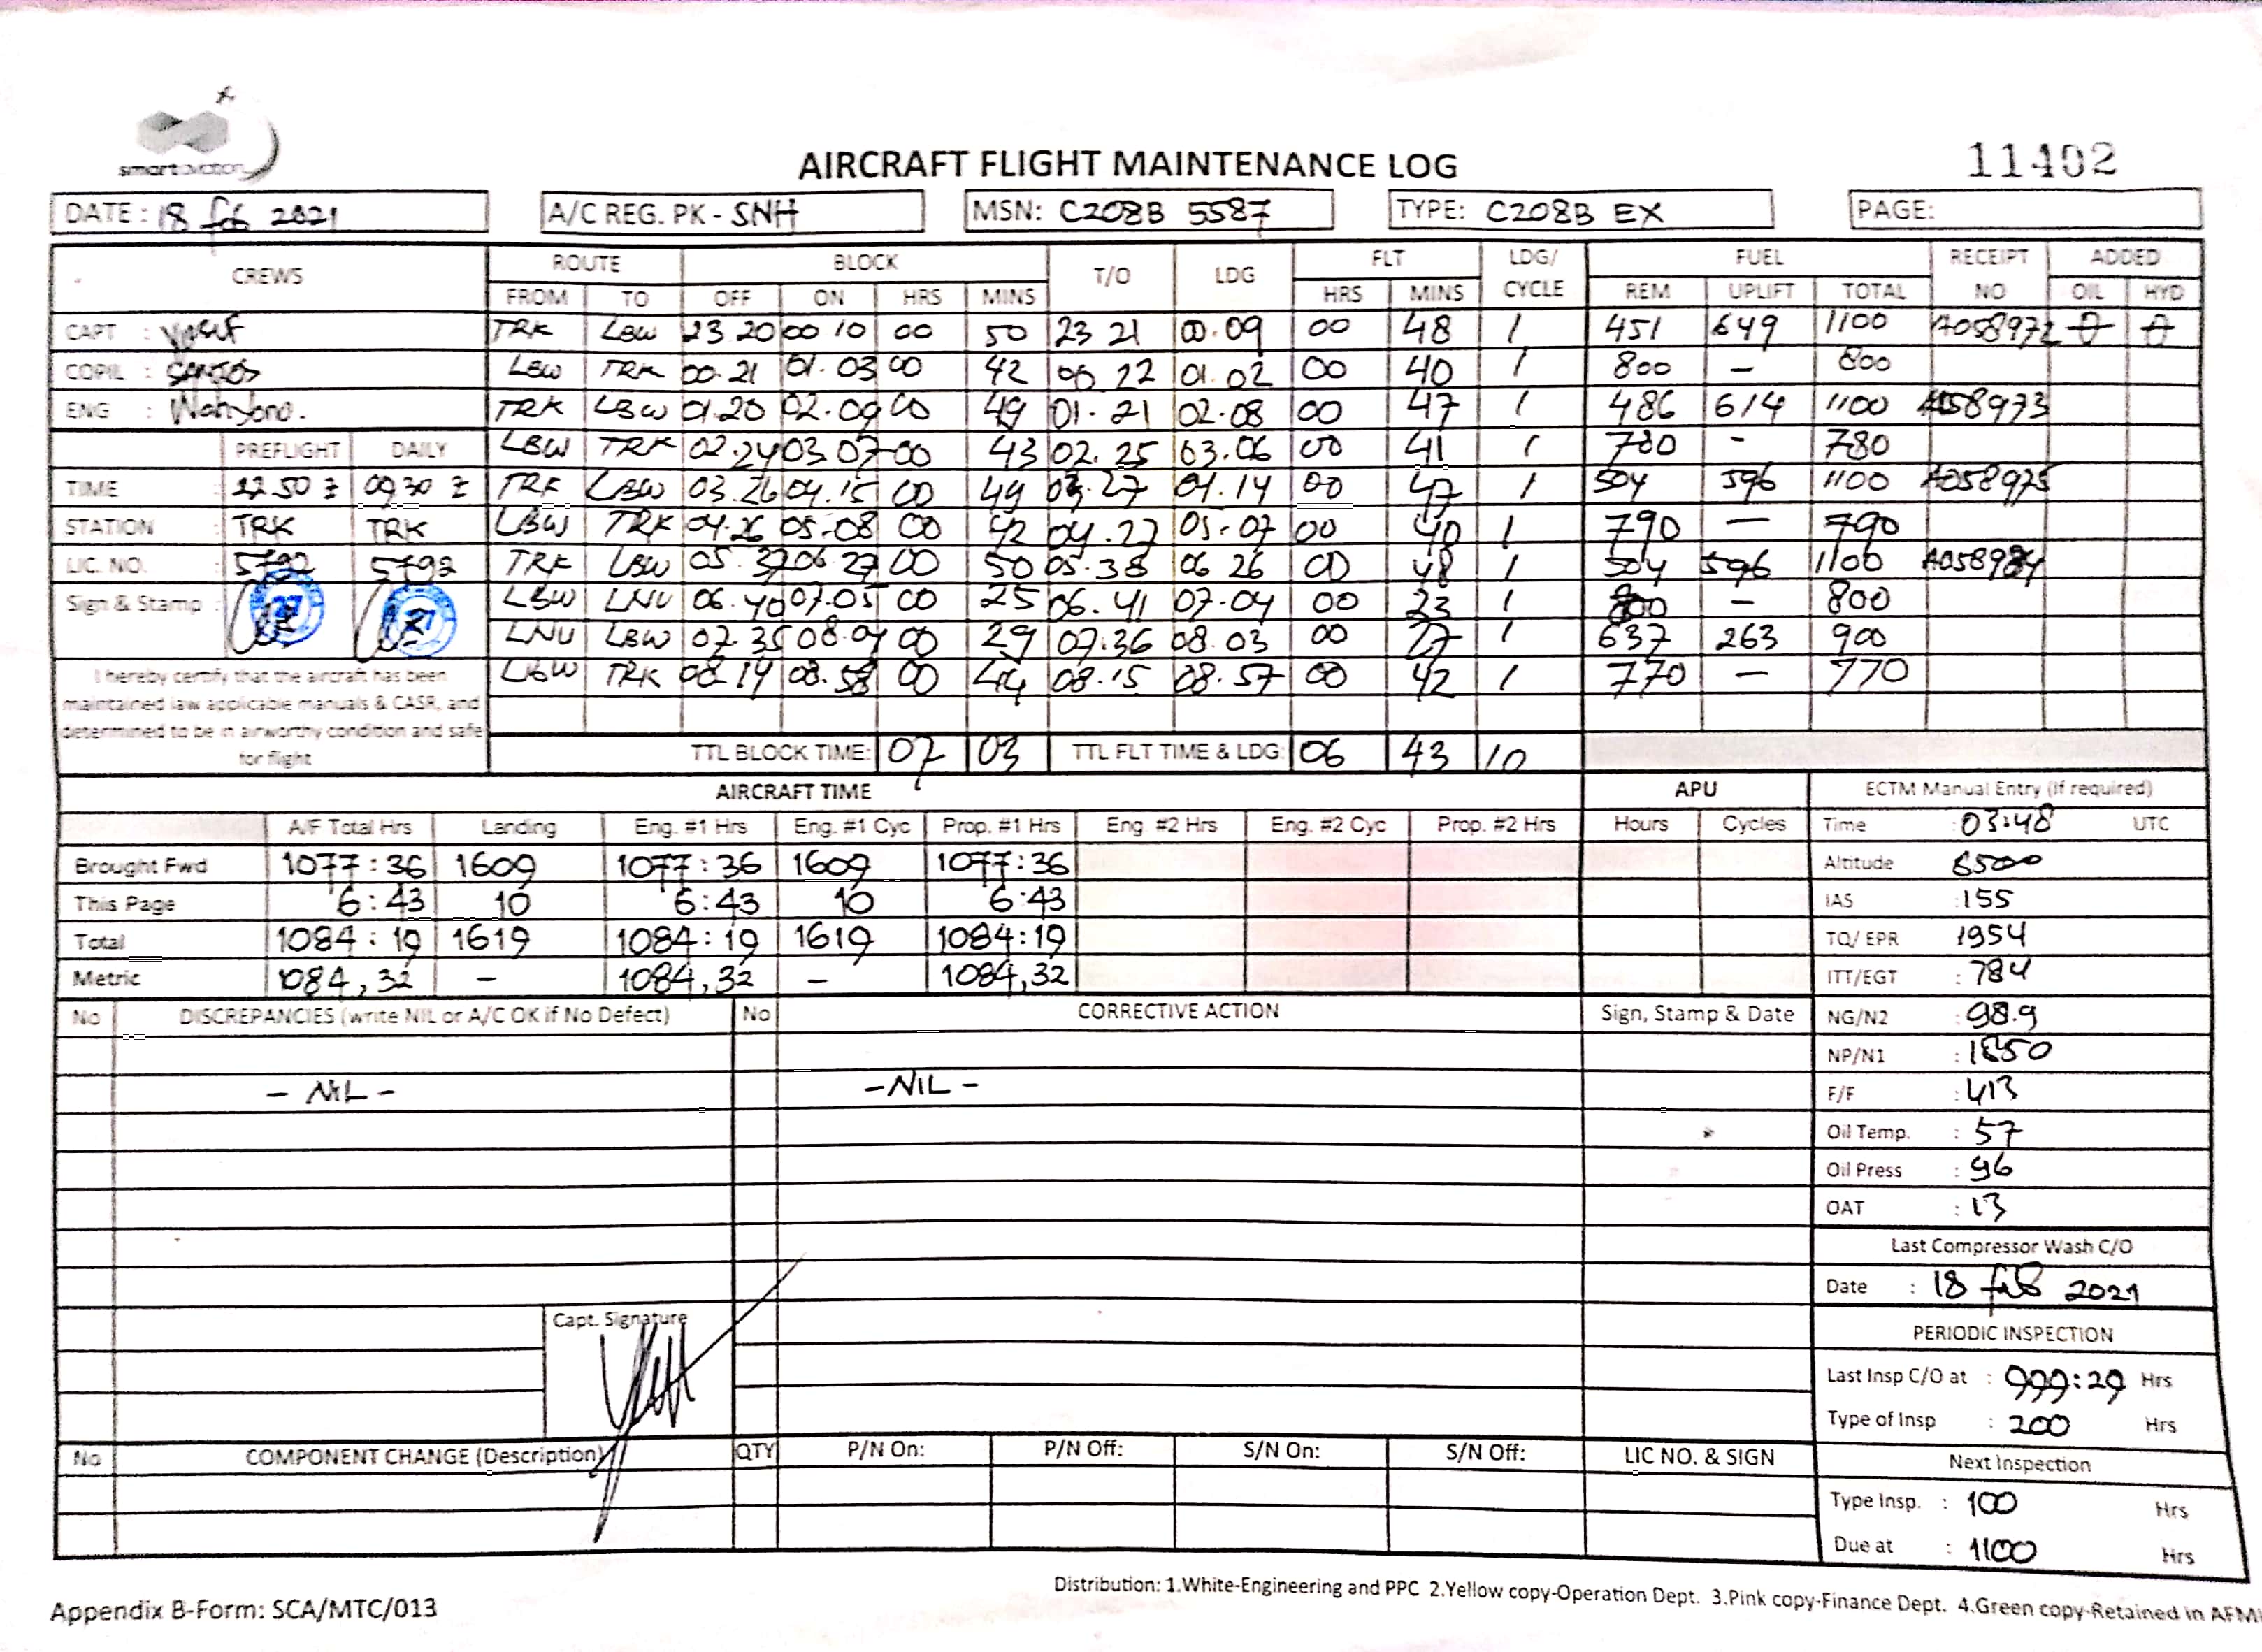 smart aviation
AIRCRAFT FLIGHT MAINTENANCE LOG
11402
DATE : 18 feb 2021 A/C REG. PK - SNH MSN: C208B 5587 TYPE: C208B EX PAGE:
CREWS ROUTE BLOCK T/O LDG FLT LDG/ CYCLE FUEL RECEIPT NO ADDED
FROM TO OFF ON HRS MINS HRS MINS REM UPLIFT TOTAL OIL HYD
CAPT : Yusuf TRK LBW 23 20 00 10 00 50 23 21 00.09 00 48 1 451 649 1100 A058972
COPIL : SANTOS LBW TRK 00.21 01.03 00 42 00 22 01.02 00 40 1 800 – 800
ENG : Wahyono. TRK LBW 01.20 02.09 00 49 01.21 02.08 00 47 1 486 614 1100 A058973
PREFLIGHT DAILY LBW TRK 02.24 03.07 00 43 02.25 03.06 00 41 1 780 - 780
TIME : 22.50 z 09.30 z TRK LBW 03.26 04.15 00 49 03.27 04.14 00 47 1 504 596 1100 A058975
STATION : TRK TRK LBW TRK 04.26 05.08 00 42 04.27 05.07 00 40 1 790 — 790
LIC. NO. : 5792 5792 TRK LBW 05.37 06.27 00 50 05.38 06 26 00 48 1 504 596 1100 A058984
Sign & Stamp : LBW LNU 06.40 07.05 00 25 06.41 07.04 00 23 1 800 – 800
LNU LBW 07.35 08.04 00 29 07.36 08.03 00 27 1 637 263 900
LBW TRK 08.14 08.58 00 44 08.15 08.57 00 42 1 770 — 770
I hereby certify that the aircraft has been
maintained iaw applicable manuals & CASR, and
determined to be in airworthy condition and safe
for flight
TTL BLOCK TIME: 07 03 TTL FLT TIME & LDG: 06 43 10
AIRCRAFT TIME APU ECTM Manual Entry (If required)
A/F Total Hrs Landing Eng. #1 Hrs Eng. #1 Cyc Prop. #1 Hrs Eng #2 Hrs Eng. #2 Cyc Prop. #2 Hrs Hours Cycles Time : 03:48 UTC
Brought Fwd 1077:36 1609 1077:36 1609 1077:36 Altitude 6500
This Page 6:43 10 6:43 10 6:43 IAS : 155
Total 1084:19 1619 1084:19 1619 1084:19 TQ/ EPR 1954
Metric 1084,32 - 1084,32 – 1084,32 ITT/EGT : 784
No DISCREPANCIES (write NIL or A/C OK if No Defect) No CORRECTIVE ACTION Sign, Stamp & Date NG/N2 : 98.9
NP/N1 : 1850
- NIL - - NIL - F/F : 413
Oil Temp. : 57
Oil Press : 96
OAT : 13
Last Compressor Wash C/O
Date : 18 feb 2021
Capt. Signature
PERIODIC INSPECTION
Last Insp C/O at : 999:29 Hrs
Type of Insp : 200 Hrs
No COMPONENT CHANGE (Description) QTY P/N On: P/N Off: S/N On: S/N Off: LIC NO. & SIGN Next Inspection
Type Insp. : 100 Hrs
Due at : 1100 Hrs
Distribution: 1.White-Engineering and PPC 2.Yellow copy-Operation Dept. 3.Pink copy-Finance Dept. 4.Green copy-Retained in AFM
Appendix B-Form: SCA/MTC/013